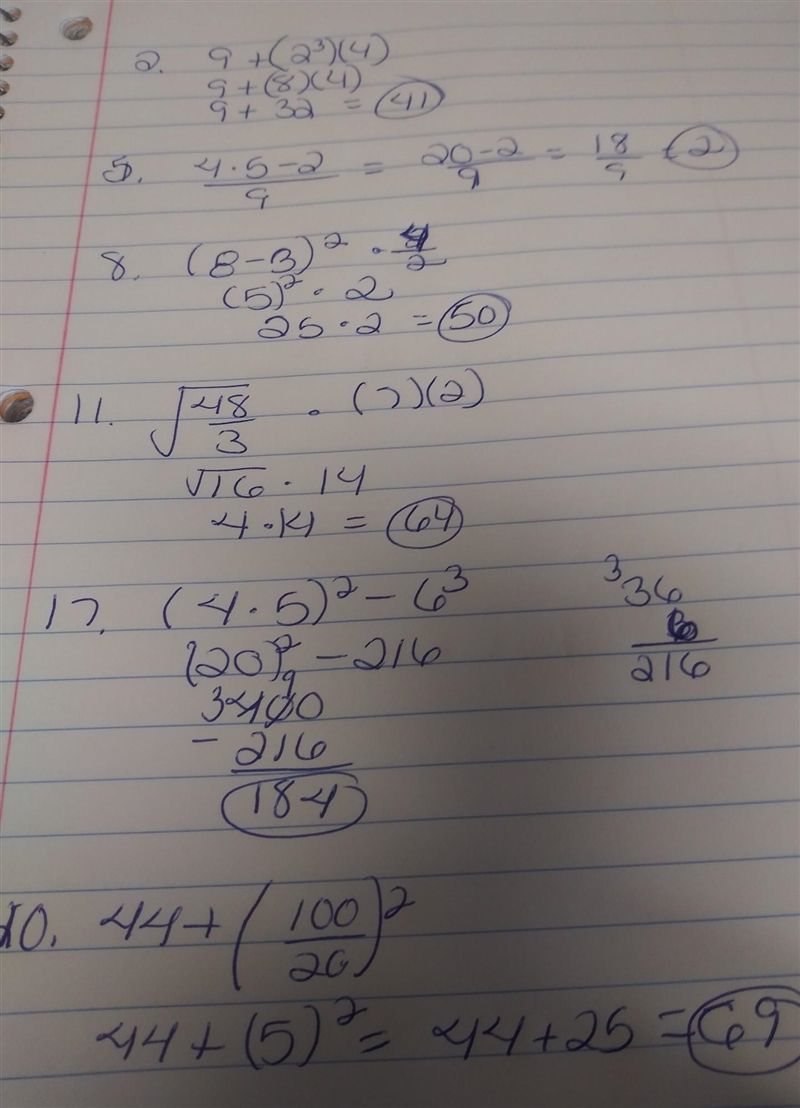 2. 9 + (2³)(4)
9 + (8)(4)
9 + 32 = 41
5. 4·5-2/9 = 20-2/9 = 18/9 = 2
8. (8-3)² · 4/2
(5)² · 2
25 · 2 = 50
11. √48/3 · (7)(2)
√16 · 14
4·14 = 64
17. (4·5)² - 6³
(20)² - 216
400
- 216
184
³36
6
216
20. 44+(100/20)²
44+(5)² = 44+25 = 69